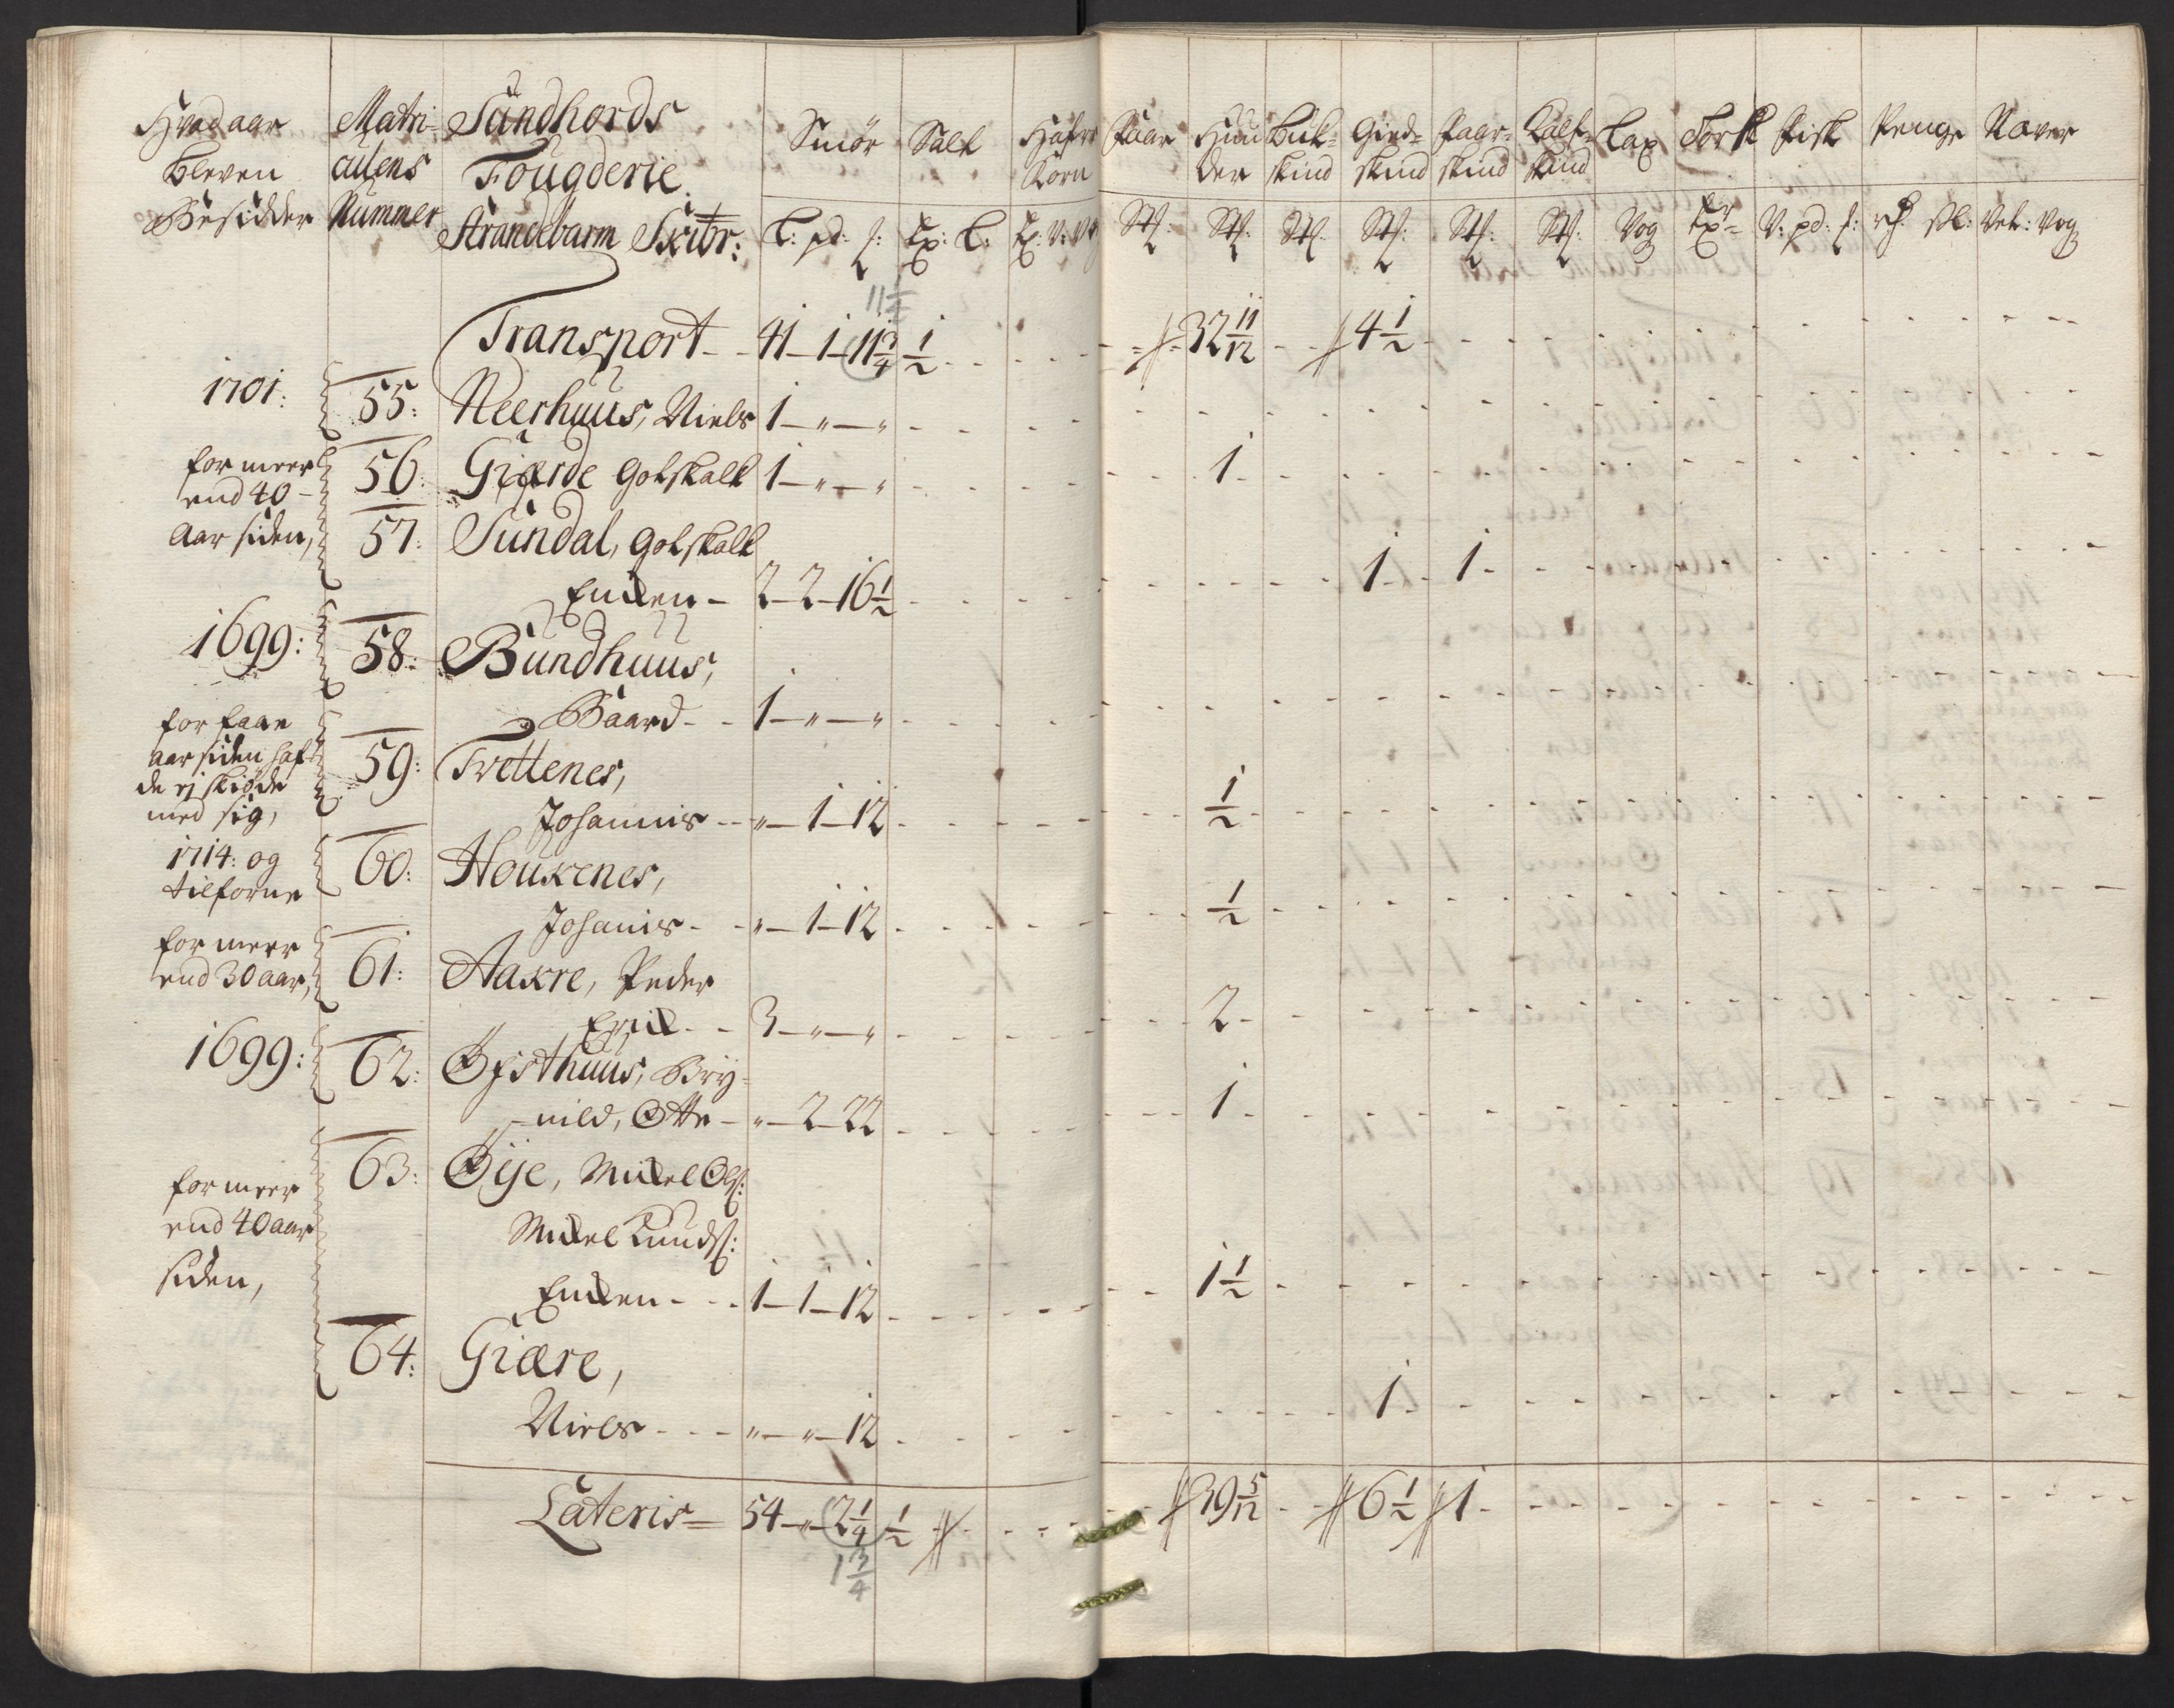 Hvad aar
bleven
Besidder
Matri-
culens
Nummer
Sundhords
Fougderie.
Strandebarm Skibr:
Smör
L: pd: ʃ:
Salt
Tp: L:
Hafre
Korn
Faar
Huu
der
Buk-
skind
Gied-
skind
Faar-
skind
Kalf-
skind
Lax
Vog
Torsk
Fisk
V: pd: ʃ:
Penge
Næver
Vet: Vog
11 1/4
Transport - - 41 - 1 - 11 3/4 1/2 - - - - 32 11/12 - - 4 1/2 - - -
1701: 55: Neerhuus, Niels 1 - " - " - -
for meer
end 40 -
Aar siden,
56: Gierde Gotskalk 1 - " - " - - 1 - -
57: Sundal, Gotskalk
Enken - 2 - 2 - 16 1/2 - - 1 - 1 - -
1699: 58: Bundhuus,
Baard - - 1 - " - " - -
for faae
aar siden haf-
de ej skiöde
med sig,
59: Tvettenes,
Johannis - - " - 1 - 12 - - 1/2 - -
1714: og
tilforne
60: Houkenes,
Johanis - - " - 1 - 12 - - 1/2 - -
for meer
end 30 aar,
61: Aakre, Peder
Erik - - 3 - " - " - - 2 - -
1699: 62: Øfsthuus, Bry-
-nild, Otte - " - 2 - 22 - - 1 - -
for meer
end 40 aar
siden,
63: Øije, Mickel Olʃ:
Mickel Knudʃ:
Enken - - 1 - 1 - 12 - - 1 1/2 - -
64: Giære,
Niels - - - " - " - 12 - - 1 - -
Lateris = 54 - " - 2 1/4 1/2 - - 39 5/12 - - 6 1/2 1 - -
1 3/4